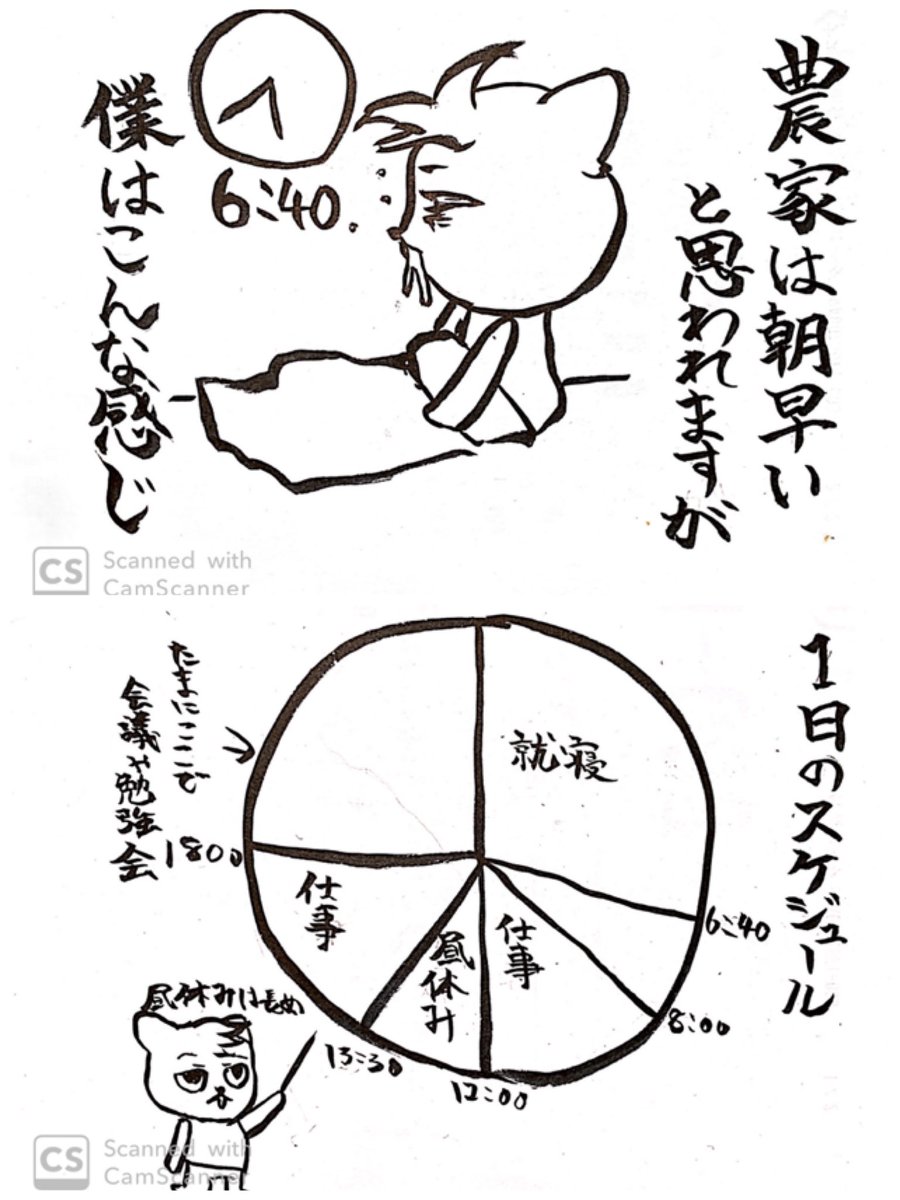 農家は朝早い
と思われますが
6:40
僕はこんな感じ
CS Scanned with
CamScanner
1日のスケジュール
就寝
6:40
8:00
仕事
12:00
昼休み
13:30
仕事
1800
たまにここで
会議や勉強会
昼休みは長め
CS Scanned with
CamScanner